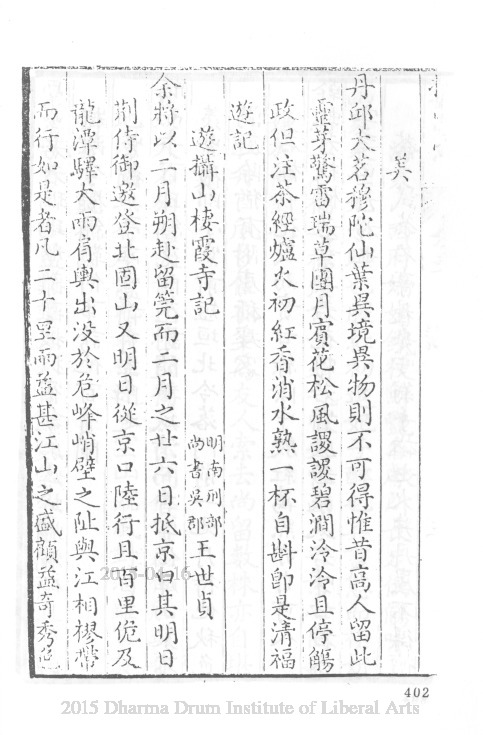 其
丹邱大茗穆陀仙葉異境異物則不可得惟昔高人留此
靈芽驚雷瑞草團月賓花松風謖謖碧澗泠泠且停觴
政但注茶經爐火初紅香消水熟一杯自斟卽是清福
遊記
遊攝山棲霞寺記 明南刑部尚書吳郡 王世貞
余將以二月朔赴留筦而二月之廿六日抵京口其明日
荆侍御邀登北固山又明日從京口陸行且百里傹及
龍潭驛大雨肩輿出没於危峰峭壁之阯與江相樛帶
而行如是者凡二十里雨益甚江山之盛顧益奇秀
402
2015-04-16
2015 Dharma Drum Institute of Liberal Arts